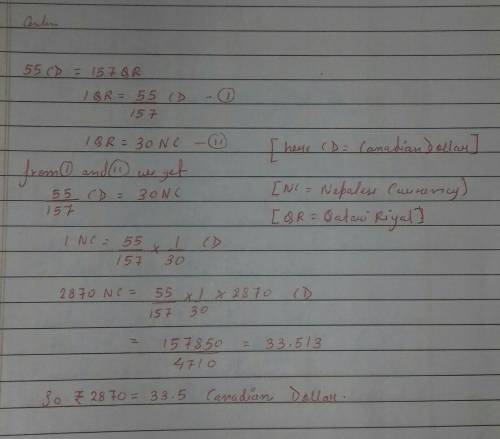 55 CD = 157 QR
1 QR = 55/157 CD - (I)
1 QR = 30 NC - (II) [here CD = Canadian Dollar]
from (I) and (II) we get
55/157 CD = 30 NC [NC = Nepalese Currency)
[QR = Qatari Riyal]
1 NC = 55/157 × 1/30 CD
2870 NC = 55/157 × 1/30 × 2870 CD
= 157850/4710 = 33.513
So ₹ 2870 = 33.5 Canadian Dollar.